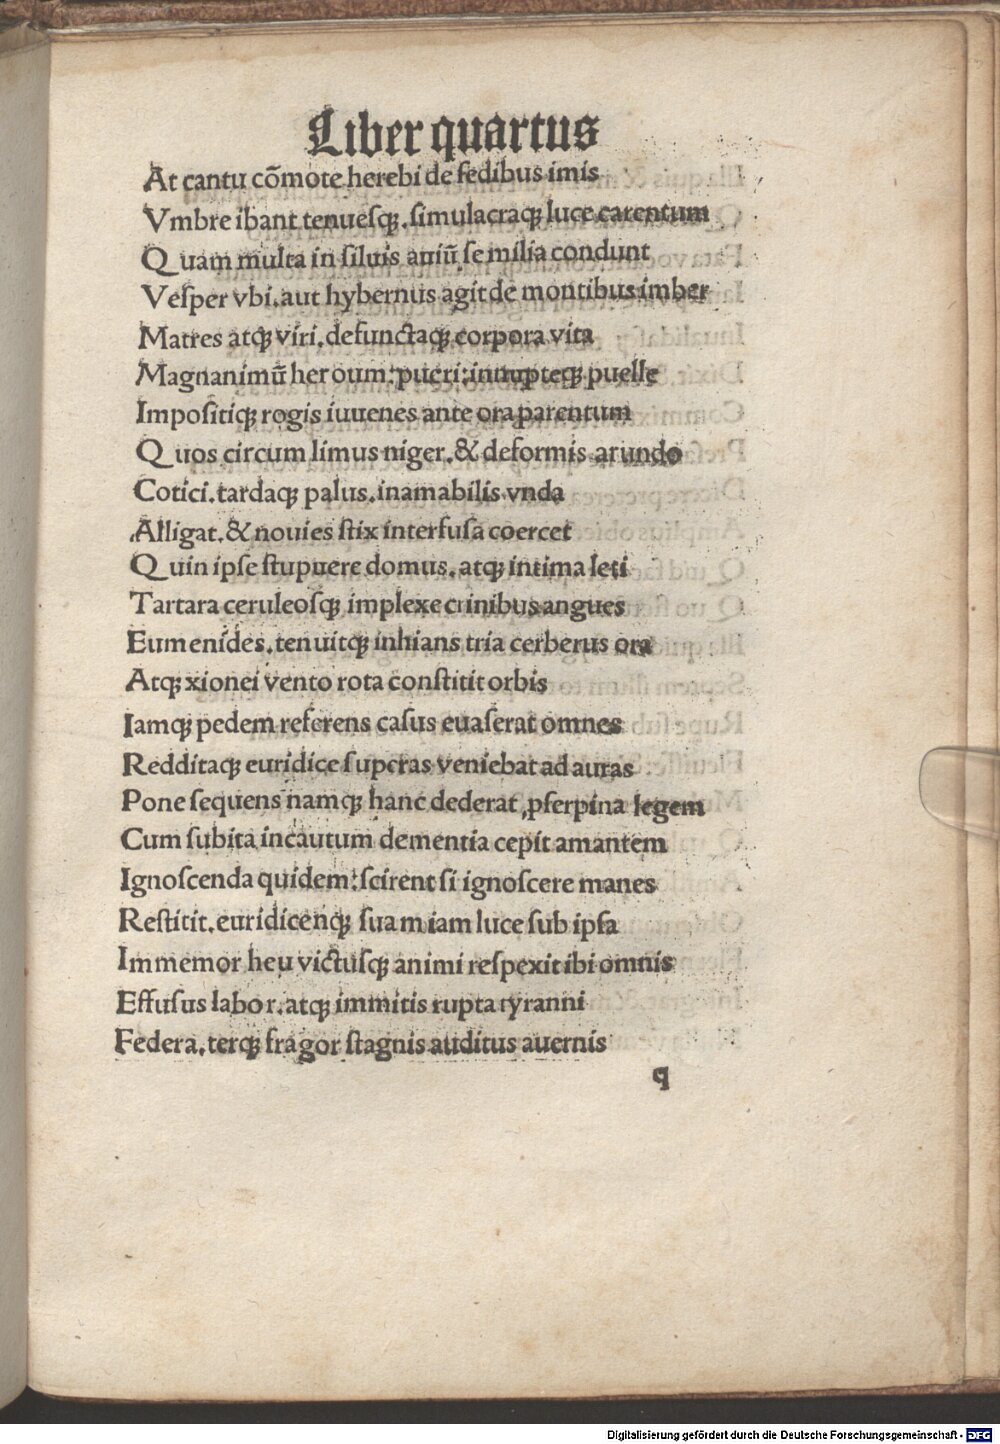 Liber quartus
At cantu cõmote herebi de ſedibus imis
Vmbre ibant tenueſqꝫ.ſimulacraqꝫ luce carentum
Quam multa in ſiluis auiũ ſe milia condunt
Veſper vbi.aut hybernus agit de montibus imber
Matres atqꝫ viri.defunctaqꝫ corpora vita
Magnanimũ heroum:pueri:innupteqꝫ puelle
Impoſitiqꝫ rogis iuuenes ante ora parentum
Quos circum limus niger.& deformis arundo
Cotici.tardaqꝫ palus.inamabilis vnda
Alligat.& nouies ſtix interfuſa coercet
Quin ipſe ſtupuere domus.atqꝫ intima leti
Tartara ceruleoſqꝫ implexe crinibus angues
Eumenides.tenuitqꝫ inhians tria cerberus ora
Atqꝫ xionei vento rota conſtitit orbis
Iamqꝫ pedem referens caſus euaſerat omnes
Redditaqꝫ euridice ſuperas veniebat ad auras
Pone ſequens namqꝫ hanc dederat ꝓſerpina legem
Cum ſubita incautum dementia cepit amantem
Ignoſcenda quidem:ſcirent ſi ignoſcere manes
Reſtitit.euridicenqꝫ ſuam iam luce ſub ipſa
Immemor heu victuſqꝫ animi reſpexit ibi omnis
Effuſus labor.atqꝫ immitis rupta tyranni
Federa.terqꝫ fragor ſtagnis auditus auernis
q
Digitalisierung gefördert durch die Deutsche Forschungsgemeinschaft - DFG